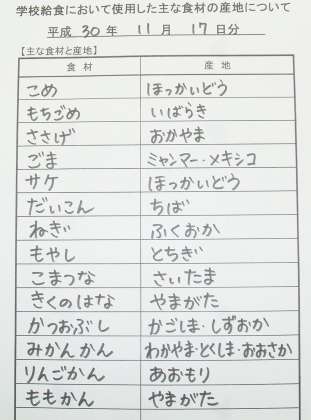 学校給食において使用した主な食材の産地について
平成 30 年 11 月 17 日分
【主な食材と産地】
食材 産地
こめ ほっかいどう
もちごめ いばらき
ささげ おかやま
ごま ミャンマー・メキシコ
サケ ほっかいどう
だいこん ちば
ねぎ ふくおか
もやし とちぎ
こまつな さいたま
きくのはな やまがた
かつおぶし かごしま・しずおか
みかんかん わかやま・とくしま・おおさか
りんごかん あおもり
ももかん やまがた